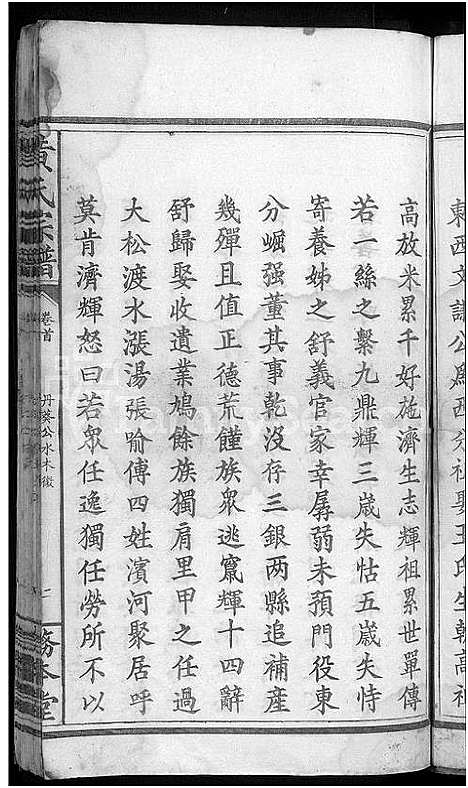 東西文謨公爲西分祖娶王氏生乾高祖
高放米累千好施濟生志輝祖累世單傳
若一絲之繫九鼎輝三歲失怙五歲失恃
寄養姊之舒義官家幸孱弱未預門役東
分崛强董其事乾没存三銀两縣追補產
幾殫且值正德荒饉族衆逃竄輝十四辭
舒歸娶收遺業鳩餘族獨肩里甲之任過
大松渡水漲湯張喻傅四姓濱河聚居呼
莫肯濟輝怒曰若衆任逸獨任勞所不以
黄氏宗譜
卷首
丹葵公水木徵
務本堂